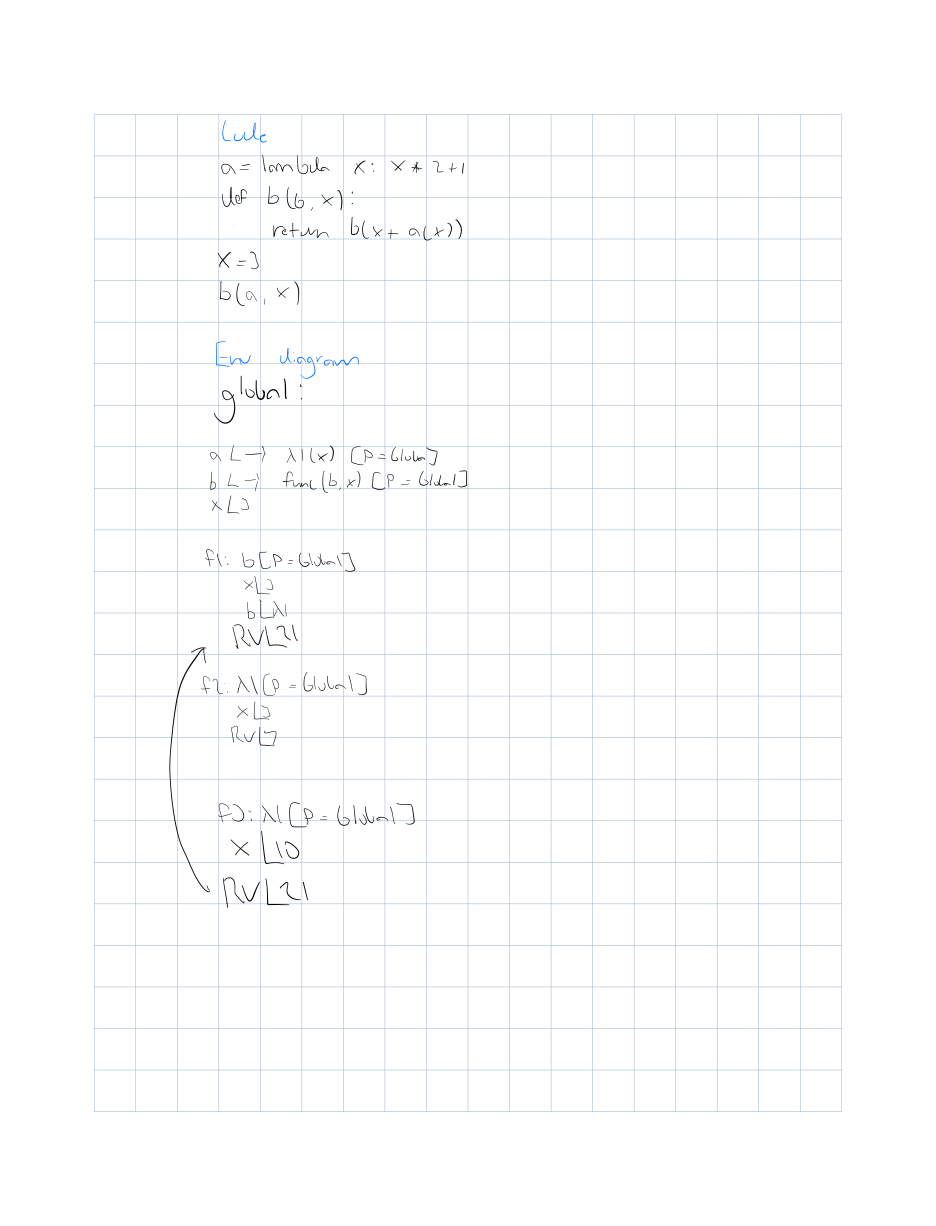 Code
a = lambda x: x * 2 + 1
def b(b, x):
return b(x + a(x))
x = 3
b(a, x)
Env diagram
global:
a └→ λ1(x) [P = Global]
b └→ func(b, x) [P = Global]
x └3
f1: b [P = Global]
x └3
b └λ1
RV └21
f2: λ1 [P = Global]
x └3
RV └7
f3: λ1 [P = Global]
x └10
RV └21